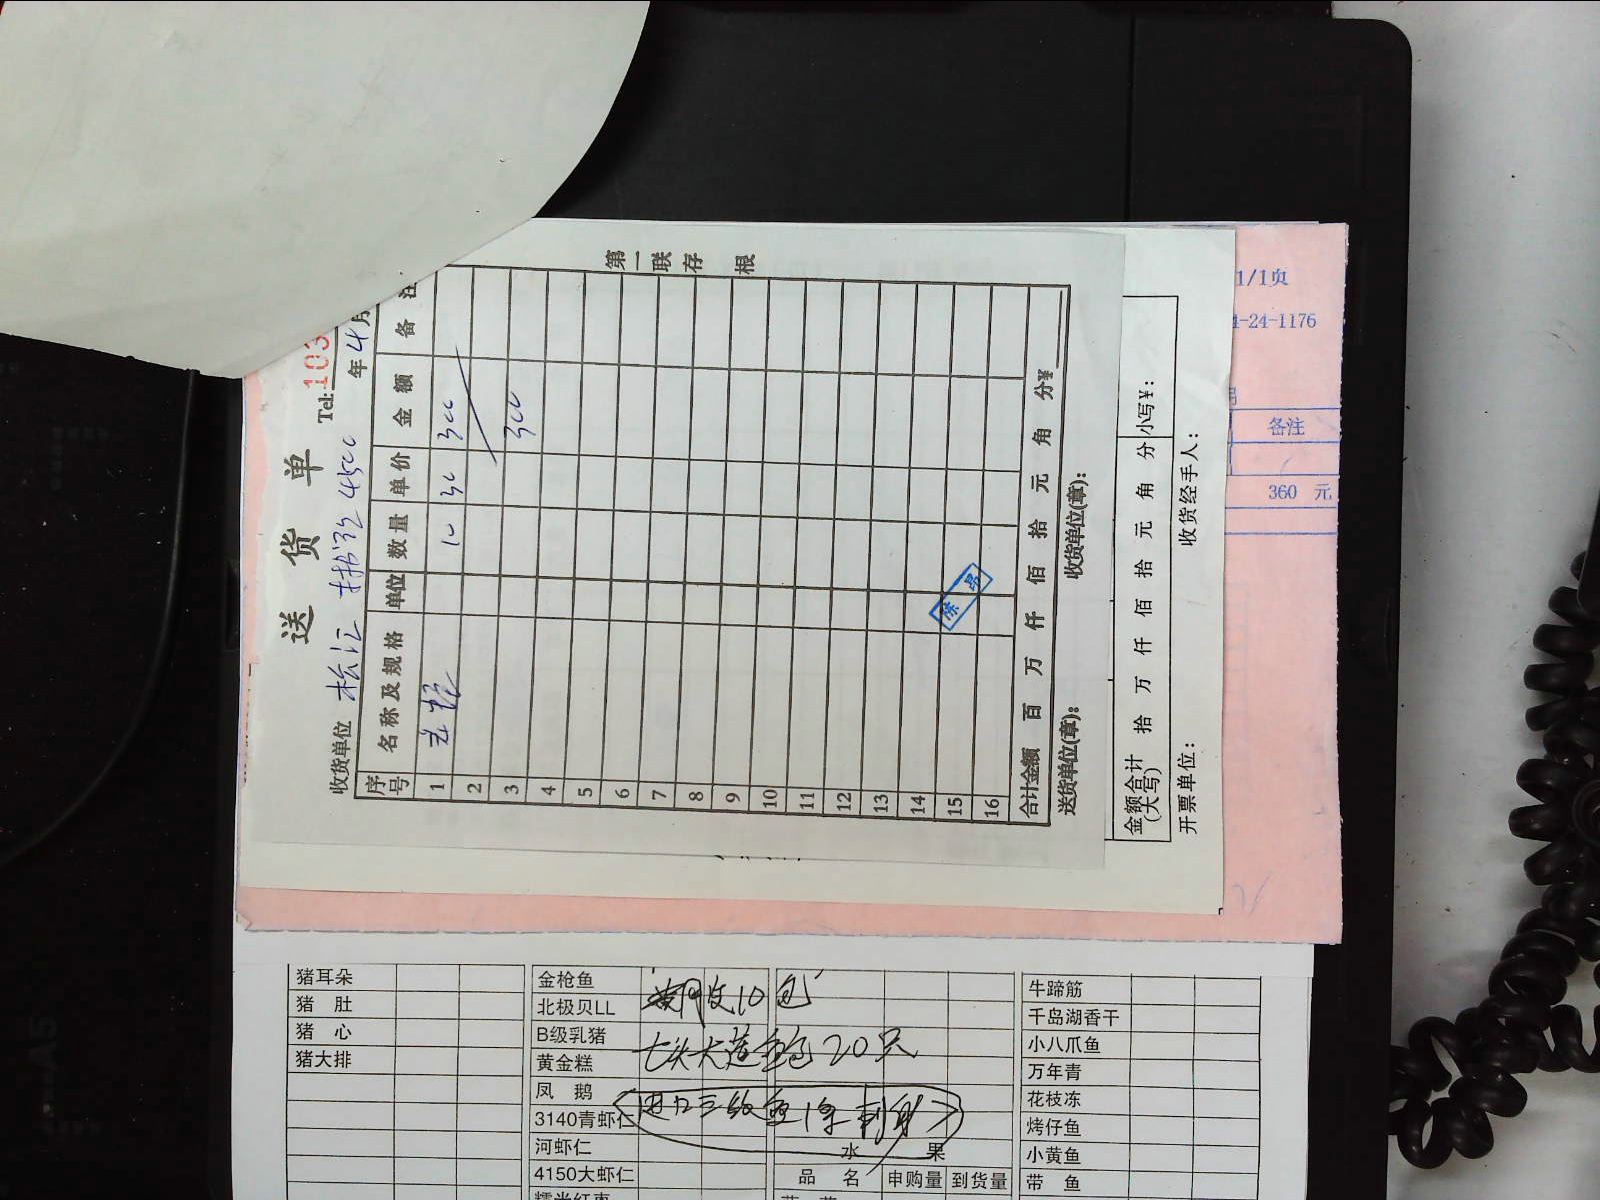 送 货 单
Tel: 103
收货单位 松江
年 4 月
序号 名称及规格 单位 数量 单价 金额 备注
1 10 30 300
2
3 300
4
5
6
7
8
9
10
11
12
13
14
15
16
合计金额 百 万 仟 佰 拾 元 角 分¥
送货单位(章): 收货单位(章):
第一联存根
金额合计(大写) 拾 万 仟 佰 拾 元 角 分 小写¥:
开票单位: 收货经手人:
1/1页
4-24-1176
备注
360 元
猪耳朵 金枪鱼 牛蹄筋
猪 肚 北极贝LL 10包 千岛湖香干
猪 心 B级乳猪 小八爪鱼
猪大排 黄金糕 七头大连鲍 20只 万年青
凤 鹅 花枝冻
3140青虾仁 烤仔鱼
河虾仁 水 果 小黄鱼
4150大虾仁 品 名 申购量 到货量 带 鱼